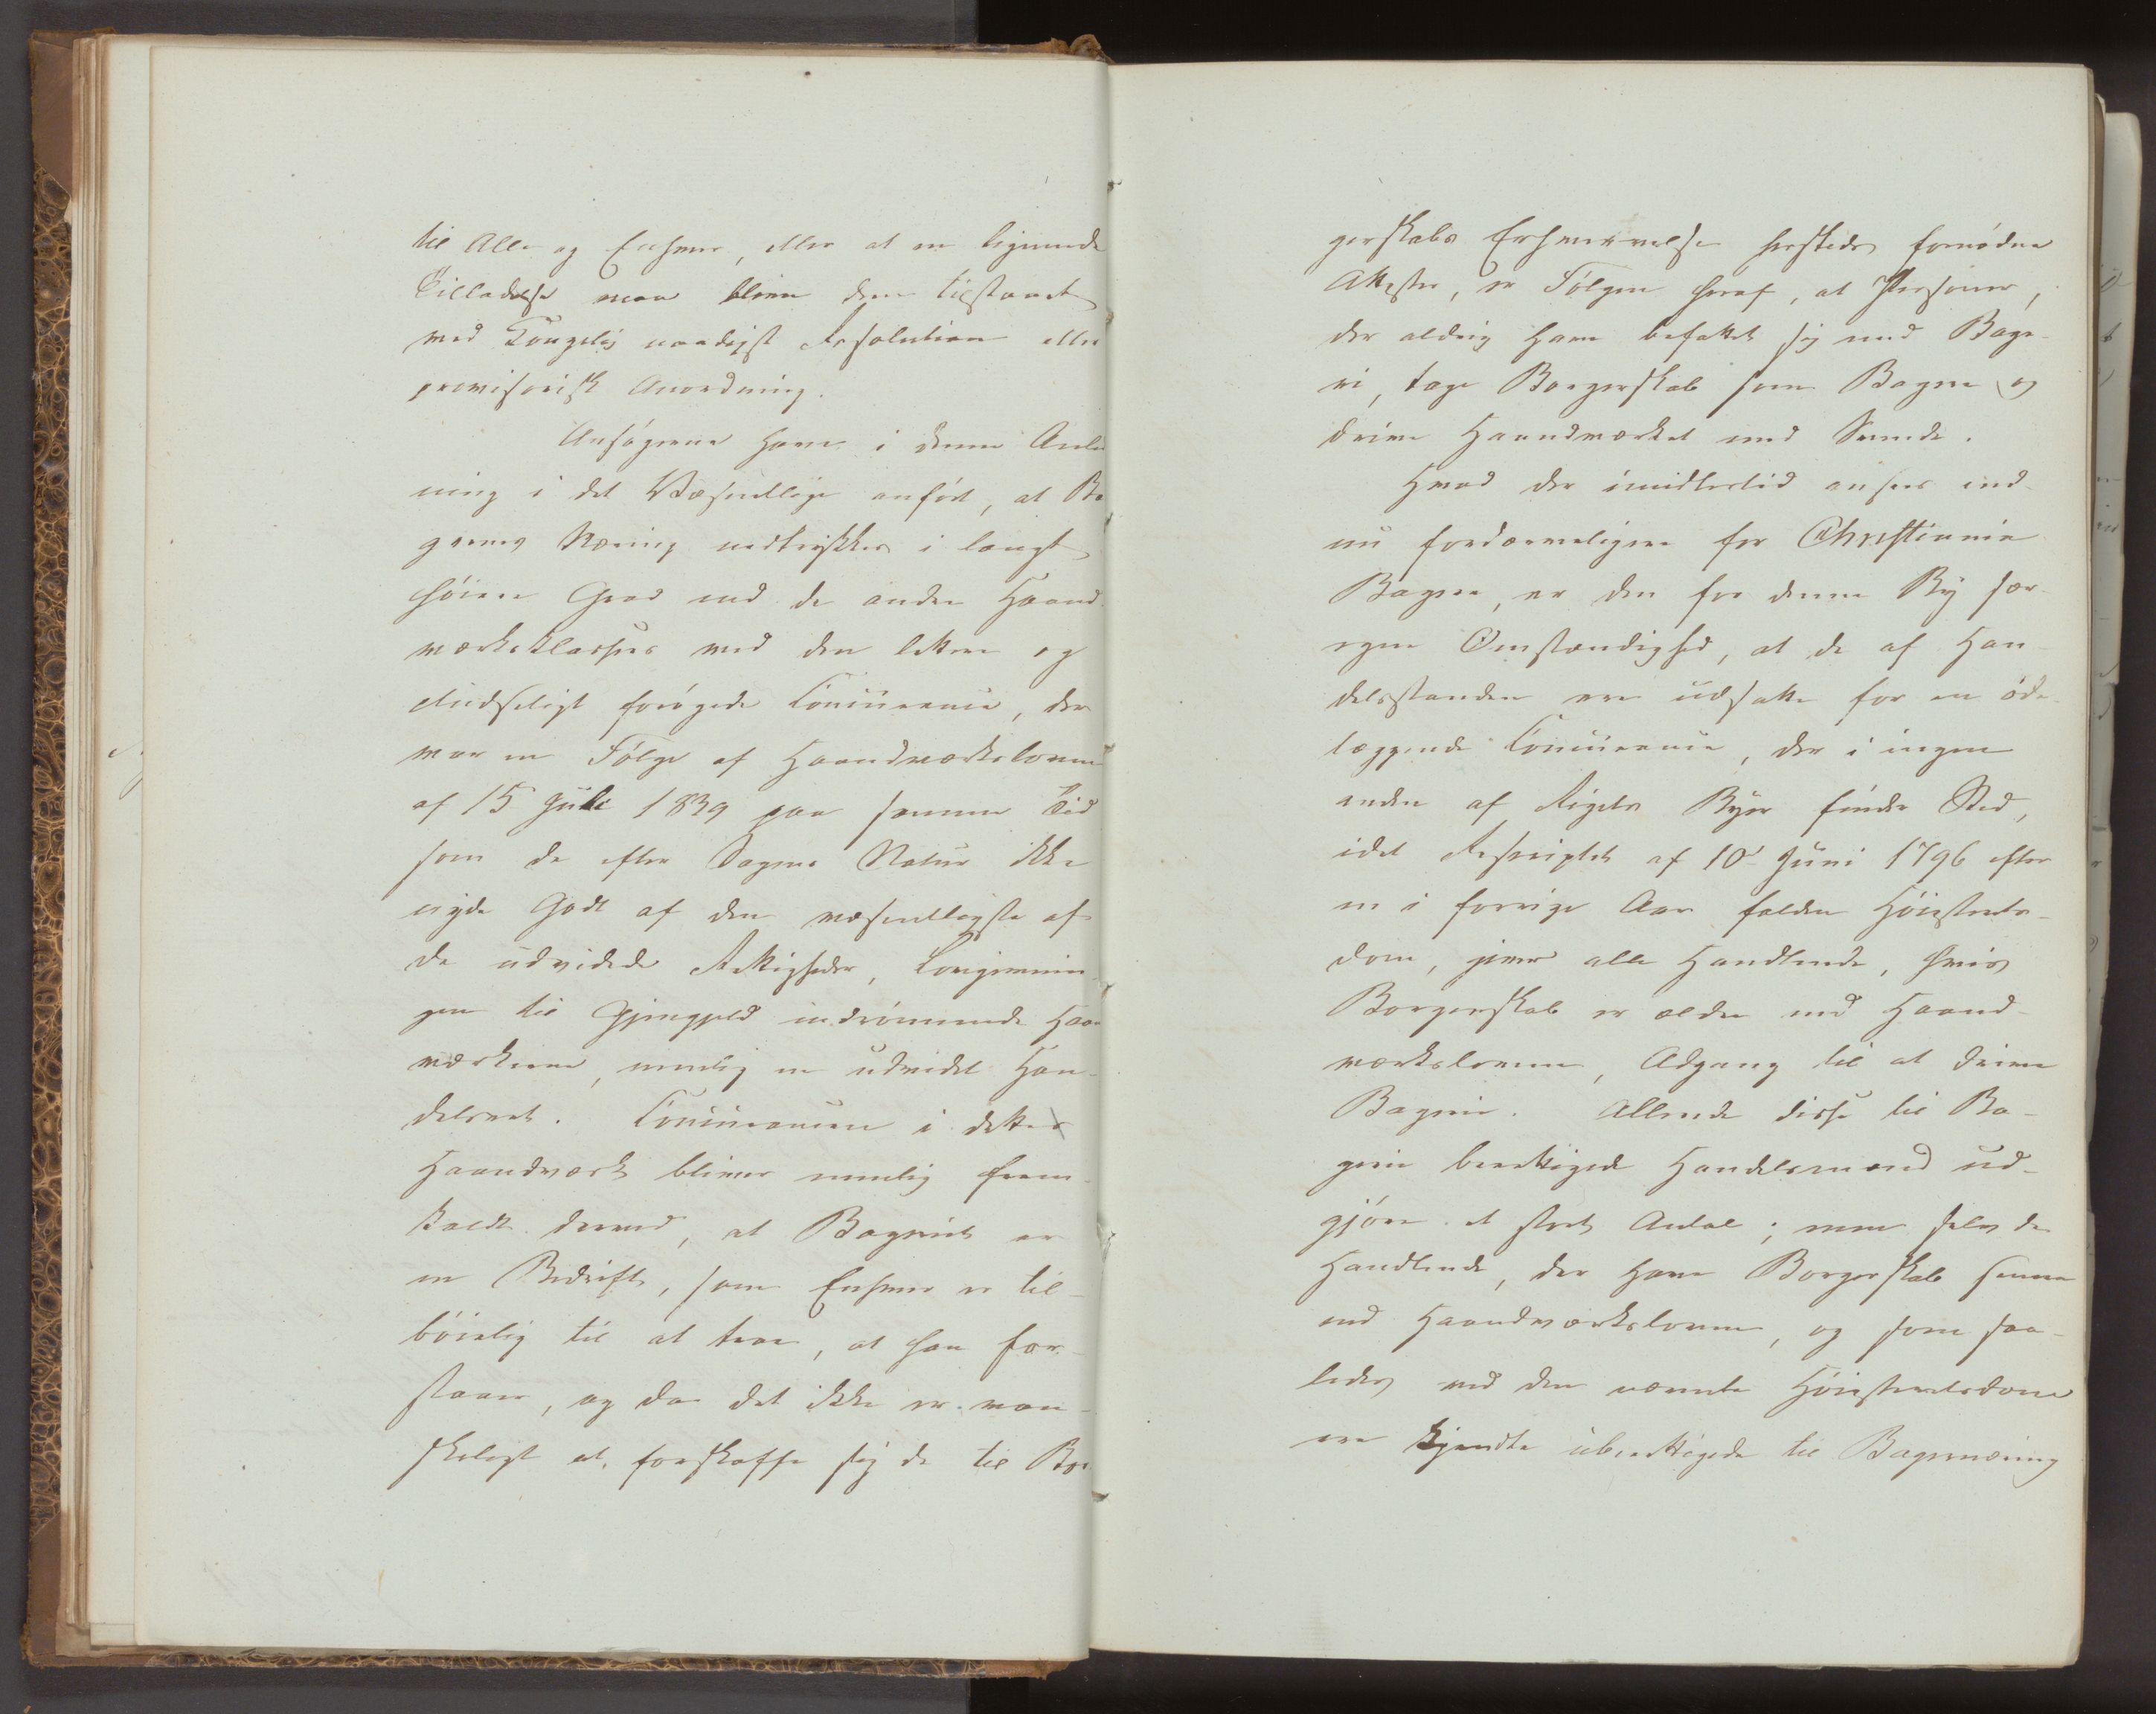 til Alle og Enhver, eller at en lignende
Tilladelse maa blive dem tilstaaet
ved Kongelig naadigst Resolution eller
provisorisk Anordning.
Ansøgerne have i denne Anled
ning i det Væsentlige anført, at Ba
gernes Næring nedtrykkes i langt
høiere Grad end de andre Haand
værksklasser ved den lettere og
eludseligt forøgede Concurrence, der
var en Følge af Haandværksloven
af 15 Juli 1839 paa samme Tid
som de efter Sagens Natur ikke
nyde Godt af den væsentligste af
de udvidede Rettigheder, Lovgivnin-
gen til Gjengjeld indrømmede Haan
værkerne, nemlig en udvidet Han-
delsret. Concurrencen i dette
Haandværk bliver nemlig frem-
kaldt derved, at Bageriet er
en Bedrift, som Enhver er til-
bøielig til at troe, at han for-
staaer, og da det ikke er van-
skeligt at forskaffe sig de til Bor
gerskabs Erhvervelse herstedes fornødne
Attester, er Følgen heraf, at Personer,
der aldrig have befattet sig med Bage-
ri, tage Borgerskab som Bagere og
drive Haandværket med Svende.
Hvad der imidlertid ansees end-
nu fordærveligere for Christiania
Bagere, er den for denne By sær-
egne Omstændighed, at de af Han-
delsstanden ere udsatte for en øde-
læggende Concurrence, der i ingen
anden af Rigets Byer finder Sted,
idet Rescriptet af 10 Juni 1796 efter
en i forrige Aar falden Høiesterets-
dom, giver alle Handlende, hvis
Borgerskab er ældre end Haand-
værksloven, Adgang til at drive
Bageri. Allerede disse til Ba-
geri berettigede Handelsmænd ud-
gjøre et stort Antal; men selv de
Handlende, der have Borgerskab senere
end Haandværksloven, og som saa-
ledes ved den nævnte Høiesteretsdom
ere kjendte uberettigede til Bagernæring